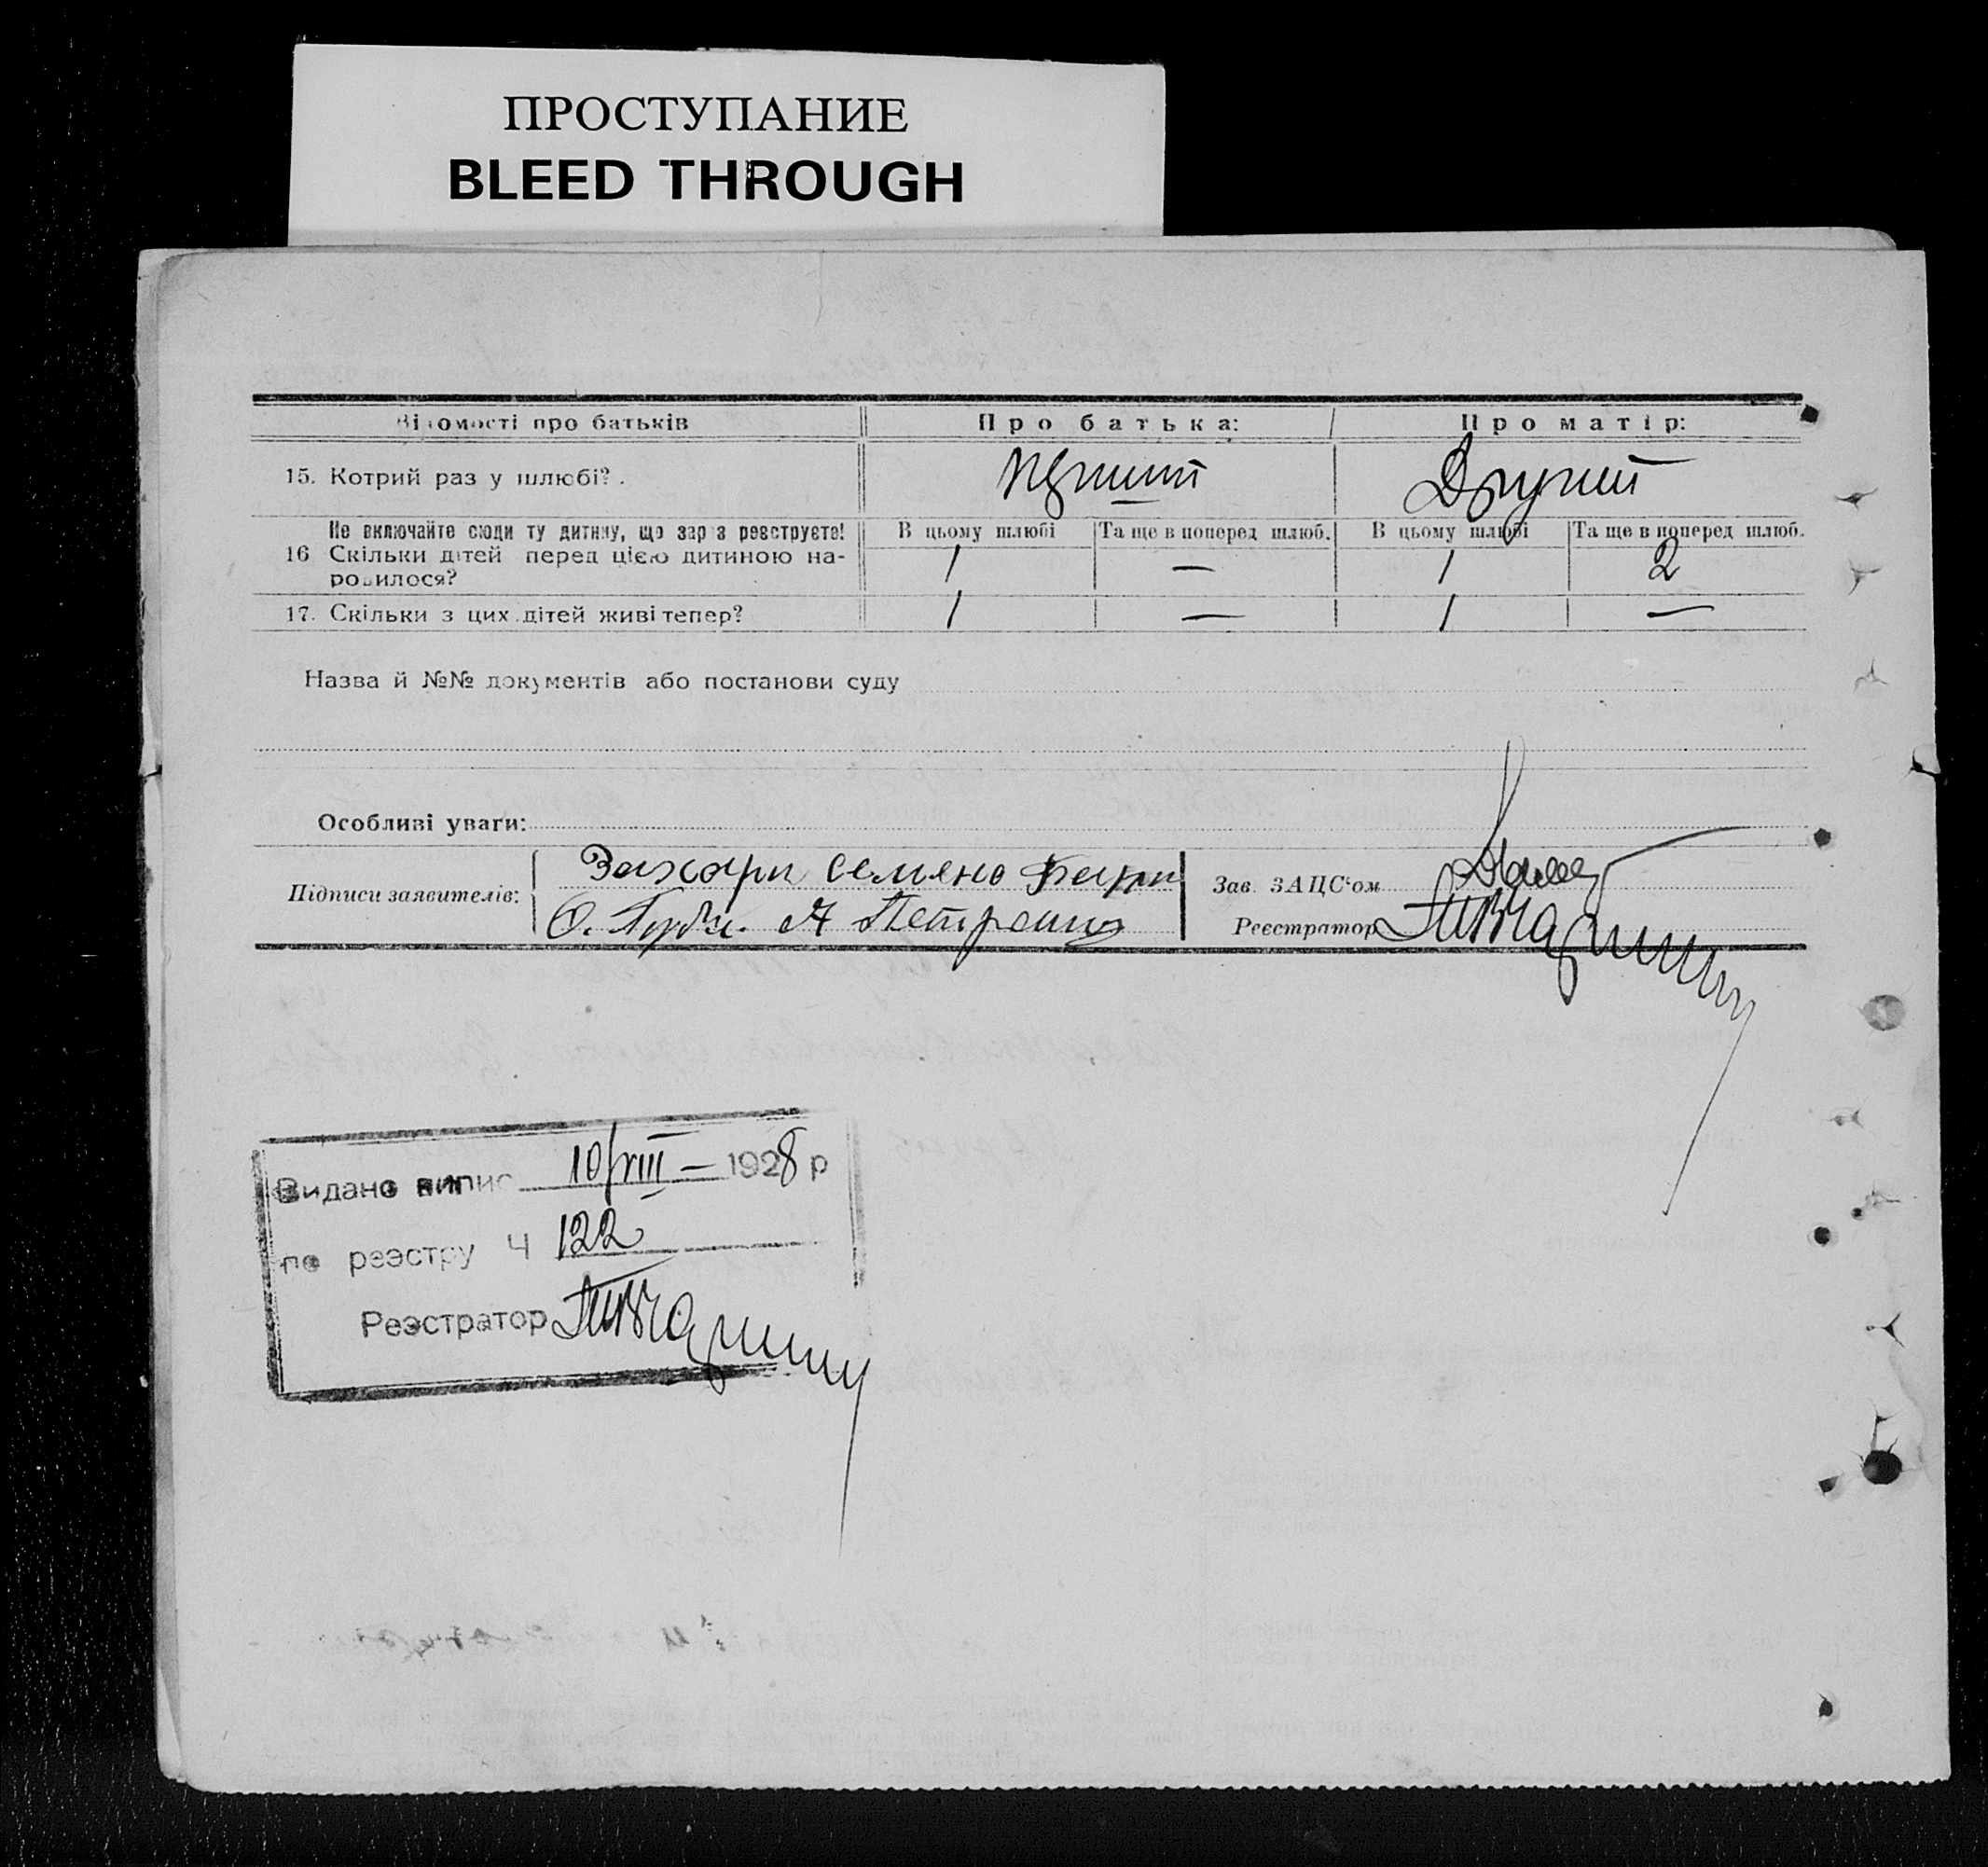 ПРОСТУПАНИЕ
BLEED THROUGH
Відомості про батьків Про батька: Про матір:
15. Котрий раз у шлюбі? Перший Другий
Не включайте сюди ту дитину, що зараз реєструєте! В цьому шлюбі Та ще в поперед шлюб. В цьому шлюбі Та ще в поперед шлюб.
16 Скільки дітей перед цією дитиною на-
родилося? 1 — 1 2
17. Скільки з цих дітей живі тепер? 1 — 1 —
Назва й №№ документів або постанови суду
Особливі уваги:
Підписи заявителів: Захари Семено
О. А Петренко
Зав. ЗАЦС'ом
Реєстратор
Видано випис 10/VIII — 1928 р
по реэстру Ч 122
Реэстратор